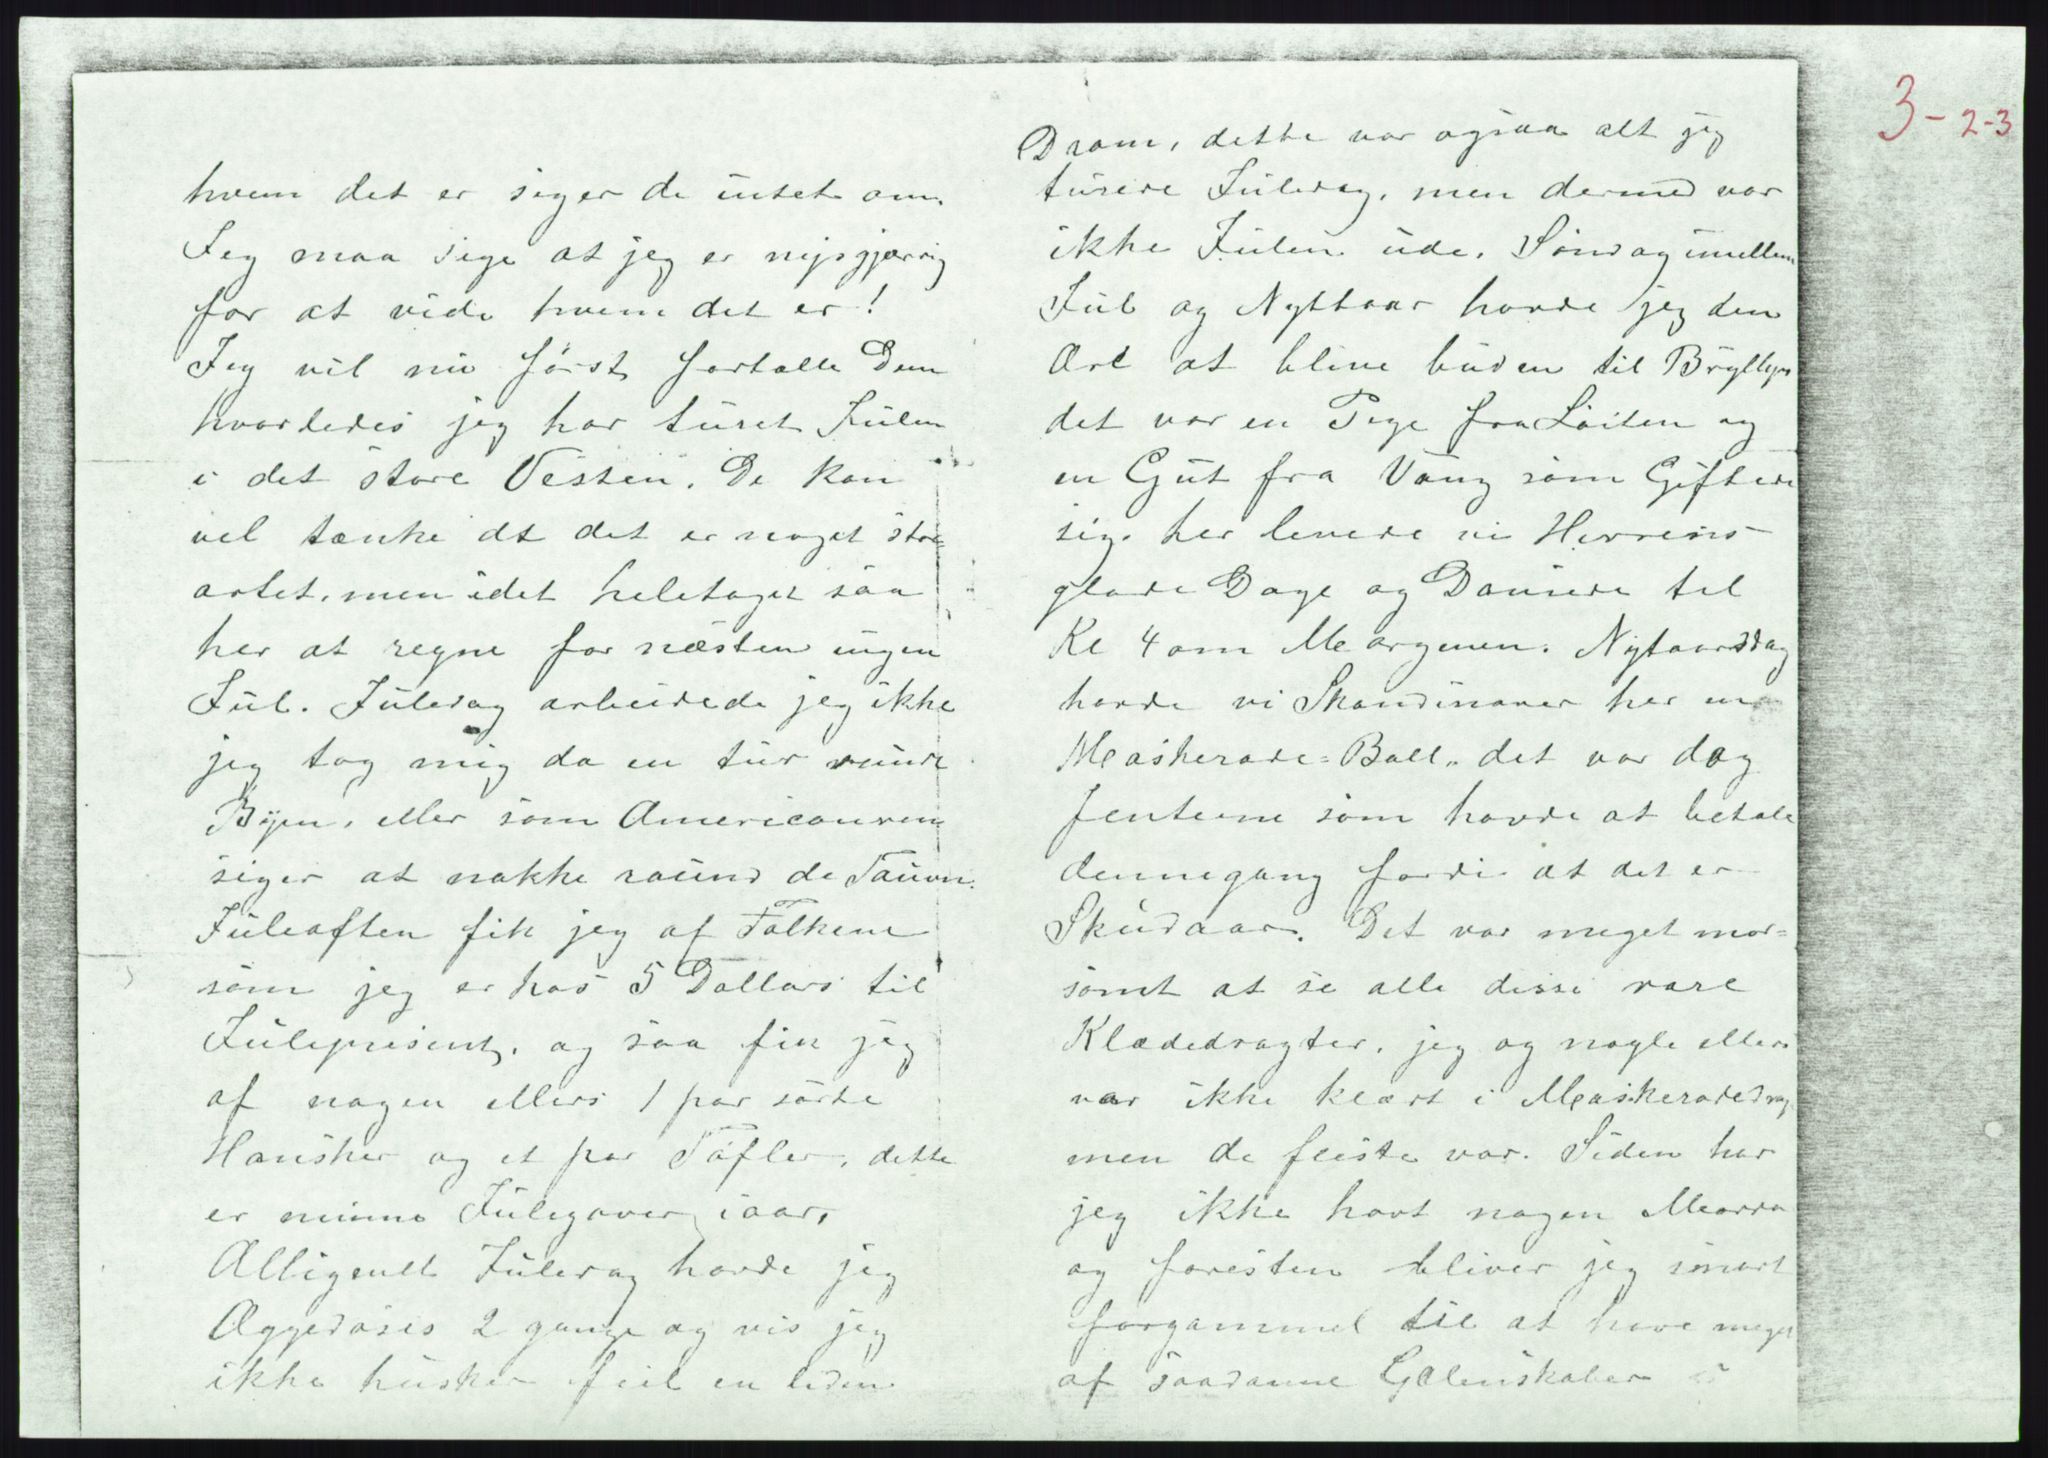 3-2-3
hvem det er siger de intet om.
Jeg maa sige at jeg er nysgjærrig
for at vide hvem det er!
Jeg vil nu først fortælle Dem
hvorledes jeg har turet Julen
i det store Vesten. De kan
vel tænke at det er noget stor=
artet, men idet heletaget saa
her at regne for næsten ingen
Jul. Juledag arbeidede jeg ikke
jeg tog mig da en tur runde
Byen, eller som Americaneren
siger at nakke raund de Tauvn.
Juleaften fik jeg af Folkene
som jeg er hos 5 Dollars til
Julepresent, og saa fik jeg
af nogen ellers 1 par sorte
Hansker og et par Tøfler, dette
er minne Julegaver iaar,
Alligevell Juledag havde jeg
Æggedosis 2 gange og vis jeg
ikke husker feil en liden
Dram, dette var ogsaa alt jeg
turede Juledag, men dermed var
ikke Julen ude. Søndag imellem
Jul og Nyttaar havde jeg den
Ære at blive buden til Bryllyps
det var en Pige fra Løiten og
en Gut fra Vang som Giftede
sig. her levede vi Herrens
glade Dage og Dansede til
Kl 4 om Morgenen. Nytaarsdag
havde vi Skandinaver her en
Maskerade=Ball, det var dog
Jenterne som havde at betale
dennegang fordi at det er
Skudaar. Det var meget mor=
somt at se alle disse rare
Klædedragter, jeg og nogle ellers
var ikke klædt i Maskeradedrag
men de fleste var. Siden har
jeg ikke havt nogen Morro
og foresten bliver jeg snart
forgammel til at have meget
af saadanne Galenskaber